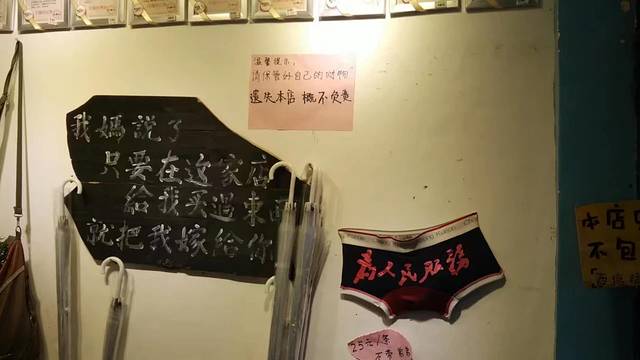 温馨提示：
请保管好自己的财物
遗失本店 概不负责
我媽說了
只要在这家店
給我买過東西
就把我嫁給你
為人民服務
25元/条
本店
不包